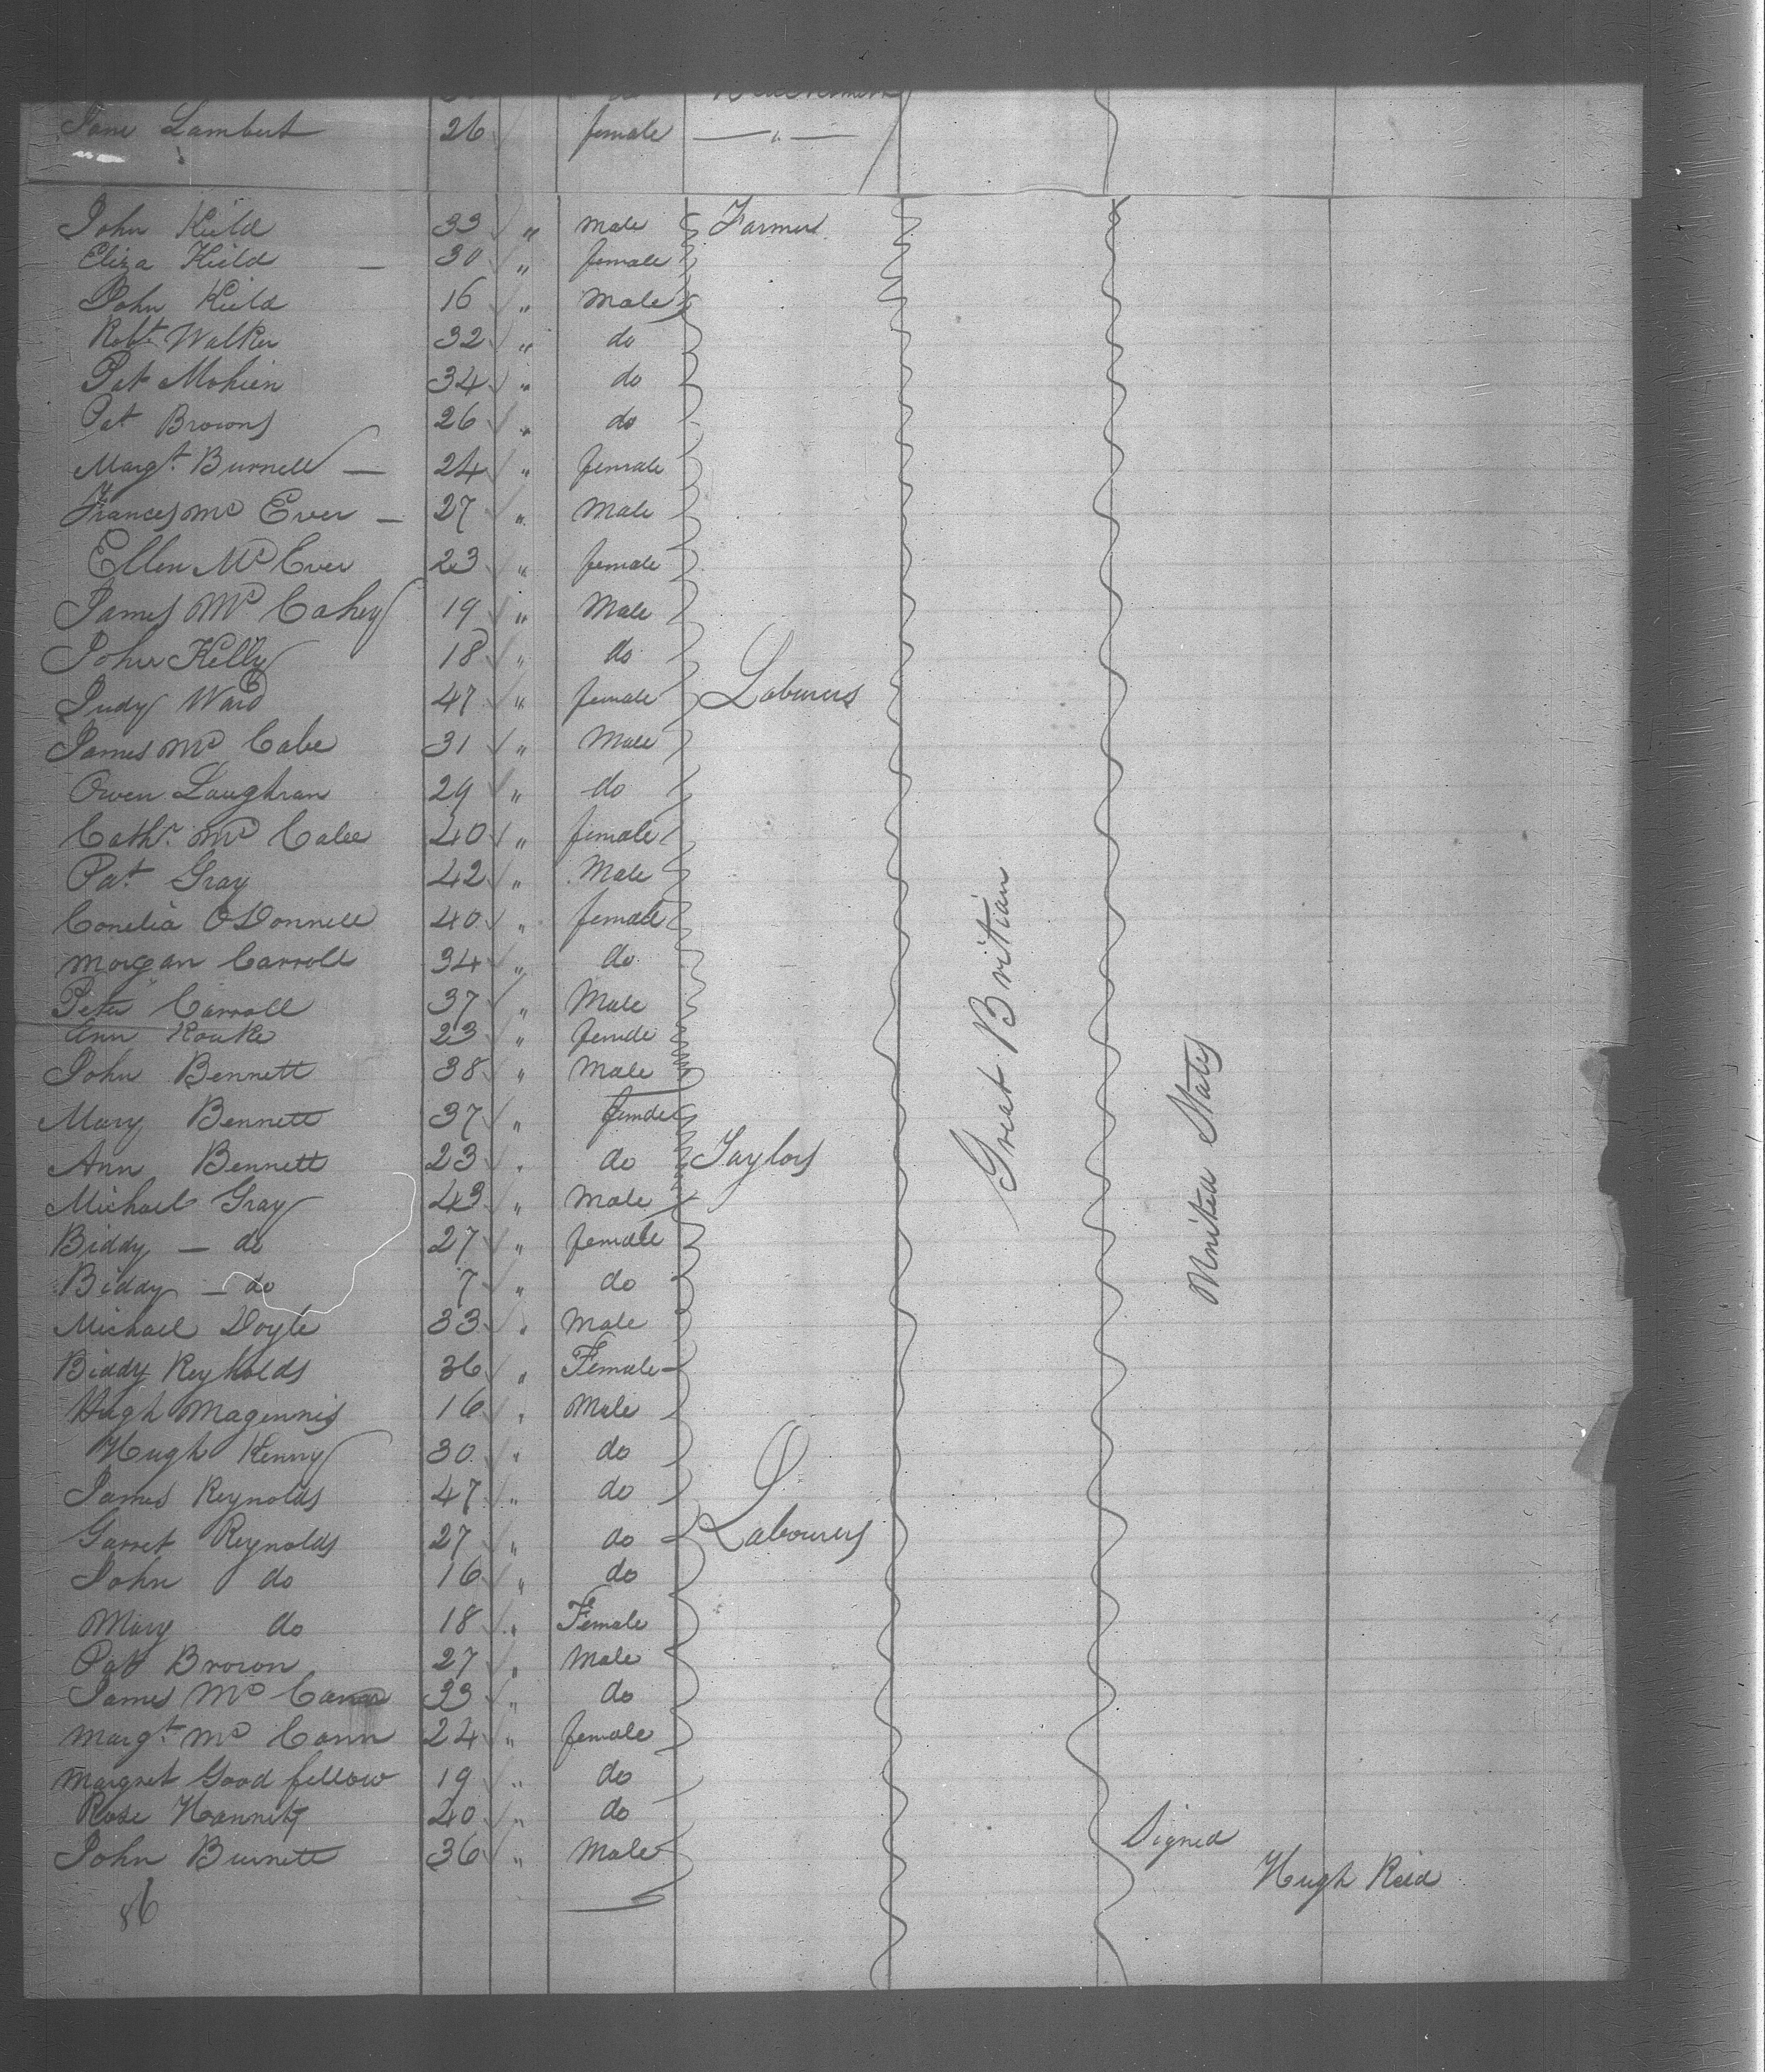 Jane Lambert 26 female — " —
John Kield 33 " male Farmer
Eliza Kield — 30 " female
John Kield 16 " Male
Robt Walker 32 " do
Pat Mohien 34 " do
Pat Browns 26 " do
Margt. Burnell — 24 " female
Frances Mc Ever — 27 " Male
Ellen Mc Ever 23 " female
James Mc Cahey 19 " Male
John Kelly 18 " do
Judy Ward 47 " female Laburers
James Mc Cabe 31 " Male
Owen Laughran 29 " do
Cathr. Mc Cabe 40 " female
Pat Gray 42 " Male
Conelia O'Donnell 40 " female
Morgan Carroll 34 " do
Peter Carroll 37 " Male
Ann Rourke 23 " female
John Bennett 38 " Male
Mary Bennett 37 " female
Ann Bennett 23 " do Taylors
Michael Gray 43 " male
Biddy — do 27 " female
Biddy — do 7 " do
Michael Doyle 33 " Male
Biddy Reynolds 36 " Female
Hugh Magennis 16 " Male
Hugh Kenny 30 " do
James Reynolds 47 " do
Garret Reynolds 27 " do Labourers
John do 16 " do
Mary do 18 " Female
Pat Brown 27 " Male
James Mc Cann 33 " do
Margt Mc Cann 24 " female
Margret Goodfellow 19 " do
Rose 40 " do
John Burnett 36 " Male
86
Great Britian
United States
Signed
Hugh Reid